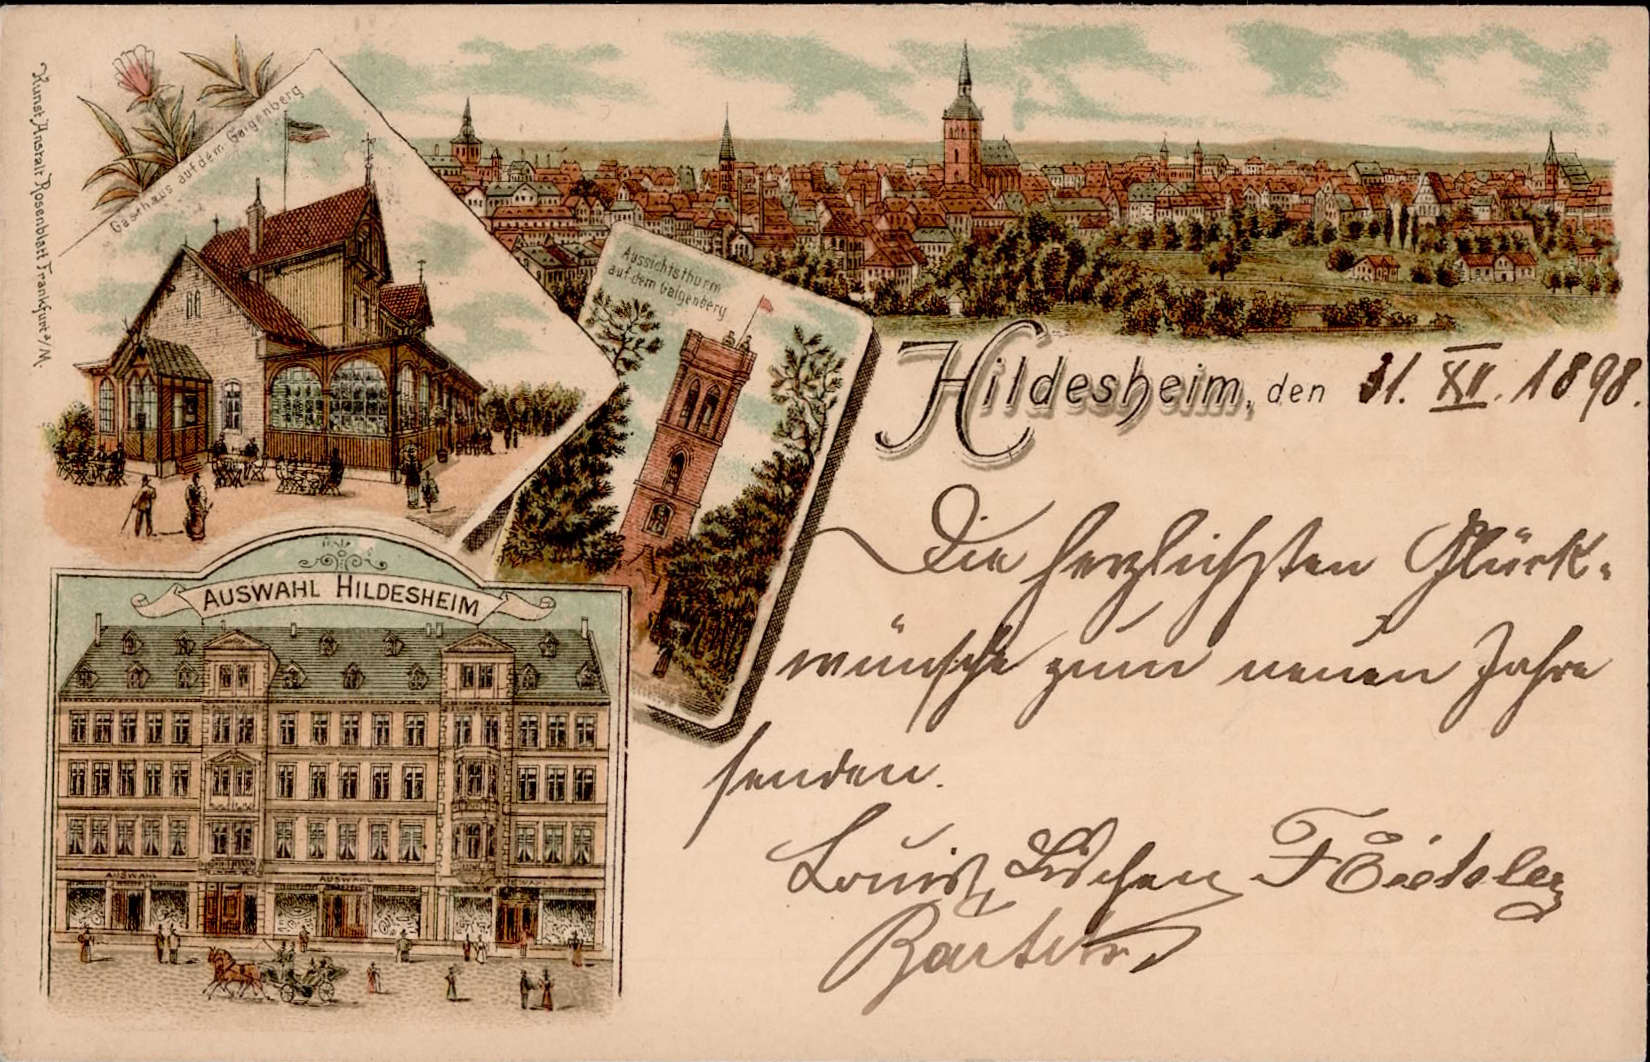 Kunst Anstalt Rosenblatt Frankfurt a/M.
Gasthaus auf dem Galgenberg
Aussichtsthurm
auf dem Galgenberg
Hildesheim, den 31. XII. 1898.
Die herzlichsten Glück-
wünsche zum neuen Jahre
senden.
Louis,
AUSWAHL HILDESHEIM
AUSWAHL
AUSWAHL